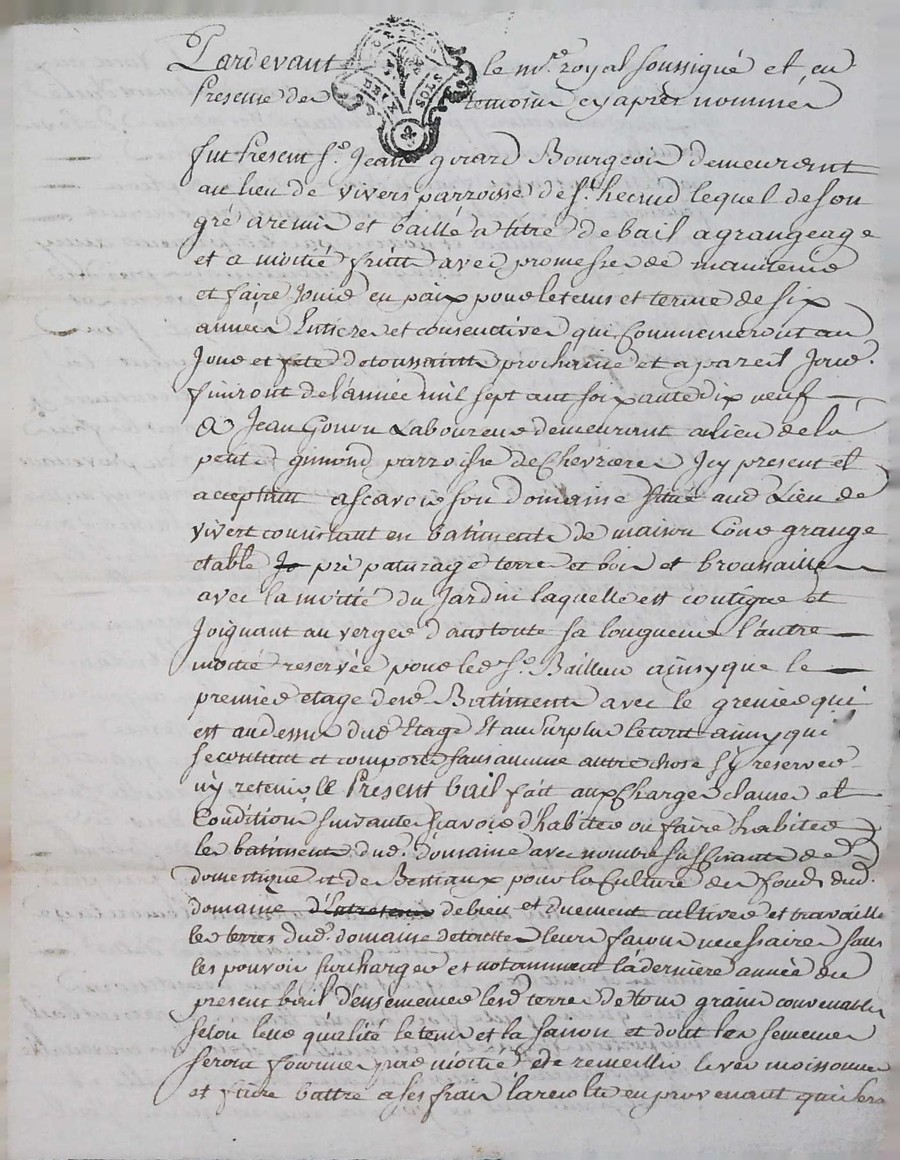 Pardevant le nre royal soussigné et en
Presence des temoins cy après nommes
fut Present sr Jean girard Bourgeois demeurant
au lieu de vivers parroisse de st heand lequel de son
gré a remis et baillé a titre de bail a grangeage
et a moitié fruits avec promesse de maintenir
et faire jouir en paix pour le tems et terme de six
années Entieres et consecutives qui Commenceront au
Jour et fete de toussaints prochaine et a pareil Jour
finiront de l'année mil sept cent soixante dix neuf
A Jean Gonon Laboureur demeurant a lieu de la
petit gimond parroisse de Chevrieres Icy present et
acceptant a scavoir son domaine situé aud Lieu de
vivert consistant en batiments de maison Cour grange
etable pré paturage terre et bois et broussailles
avec la moitié du Jardin laquelle est contigue et
Joignant au verger dans toute sa longueur l'autre
moitié reservée pour led sr Bailleur ainsy que le
premier etage desd Batiments avec le grenier qui
est au dessus dud Etage Et au Surplus le tout ainsy qui
se contient et comporte sans aucune autre chose sy reserver
ny retenir le Present bail fait aux Charges clauses et
Conditions suivantes scavoir d'habiter ou faire habiter
les batiments dud. domaine avec nombre suffisants de
domestiques et de Bestiaux pour la Culture des fonds dud.
domaine de bien et duement cultiver et travailler
les terres dud. domaine de toutes leurs facons necessaires sans
les pouvoir surcharger et notamment la derniere année du
present bail d'ensemencer lesd terres de tous grains convenables
selon leur qualité le tems et la saison et dont les semences
seront fournies par moitié de recueillir lever moissonner
et faire battre a ses frais la recolte en provenant qui sera